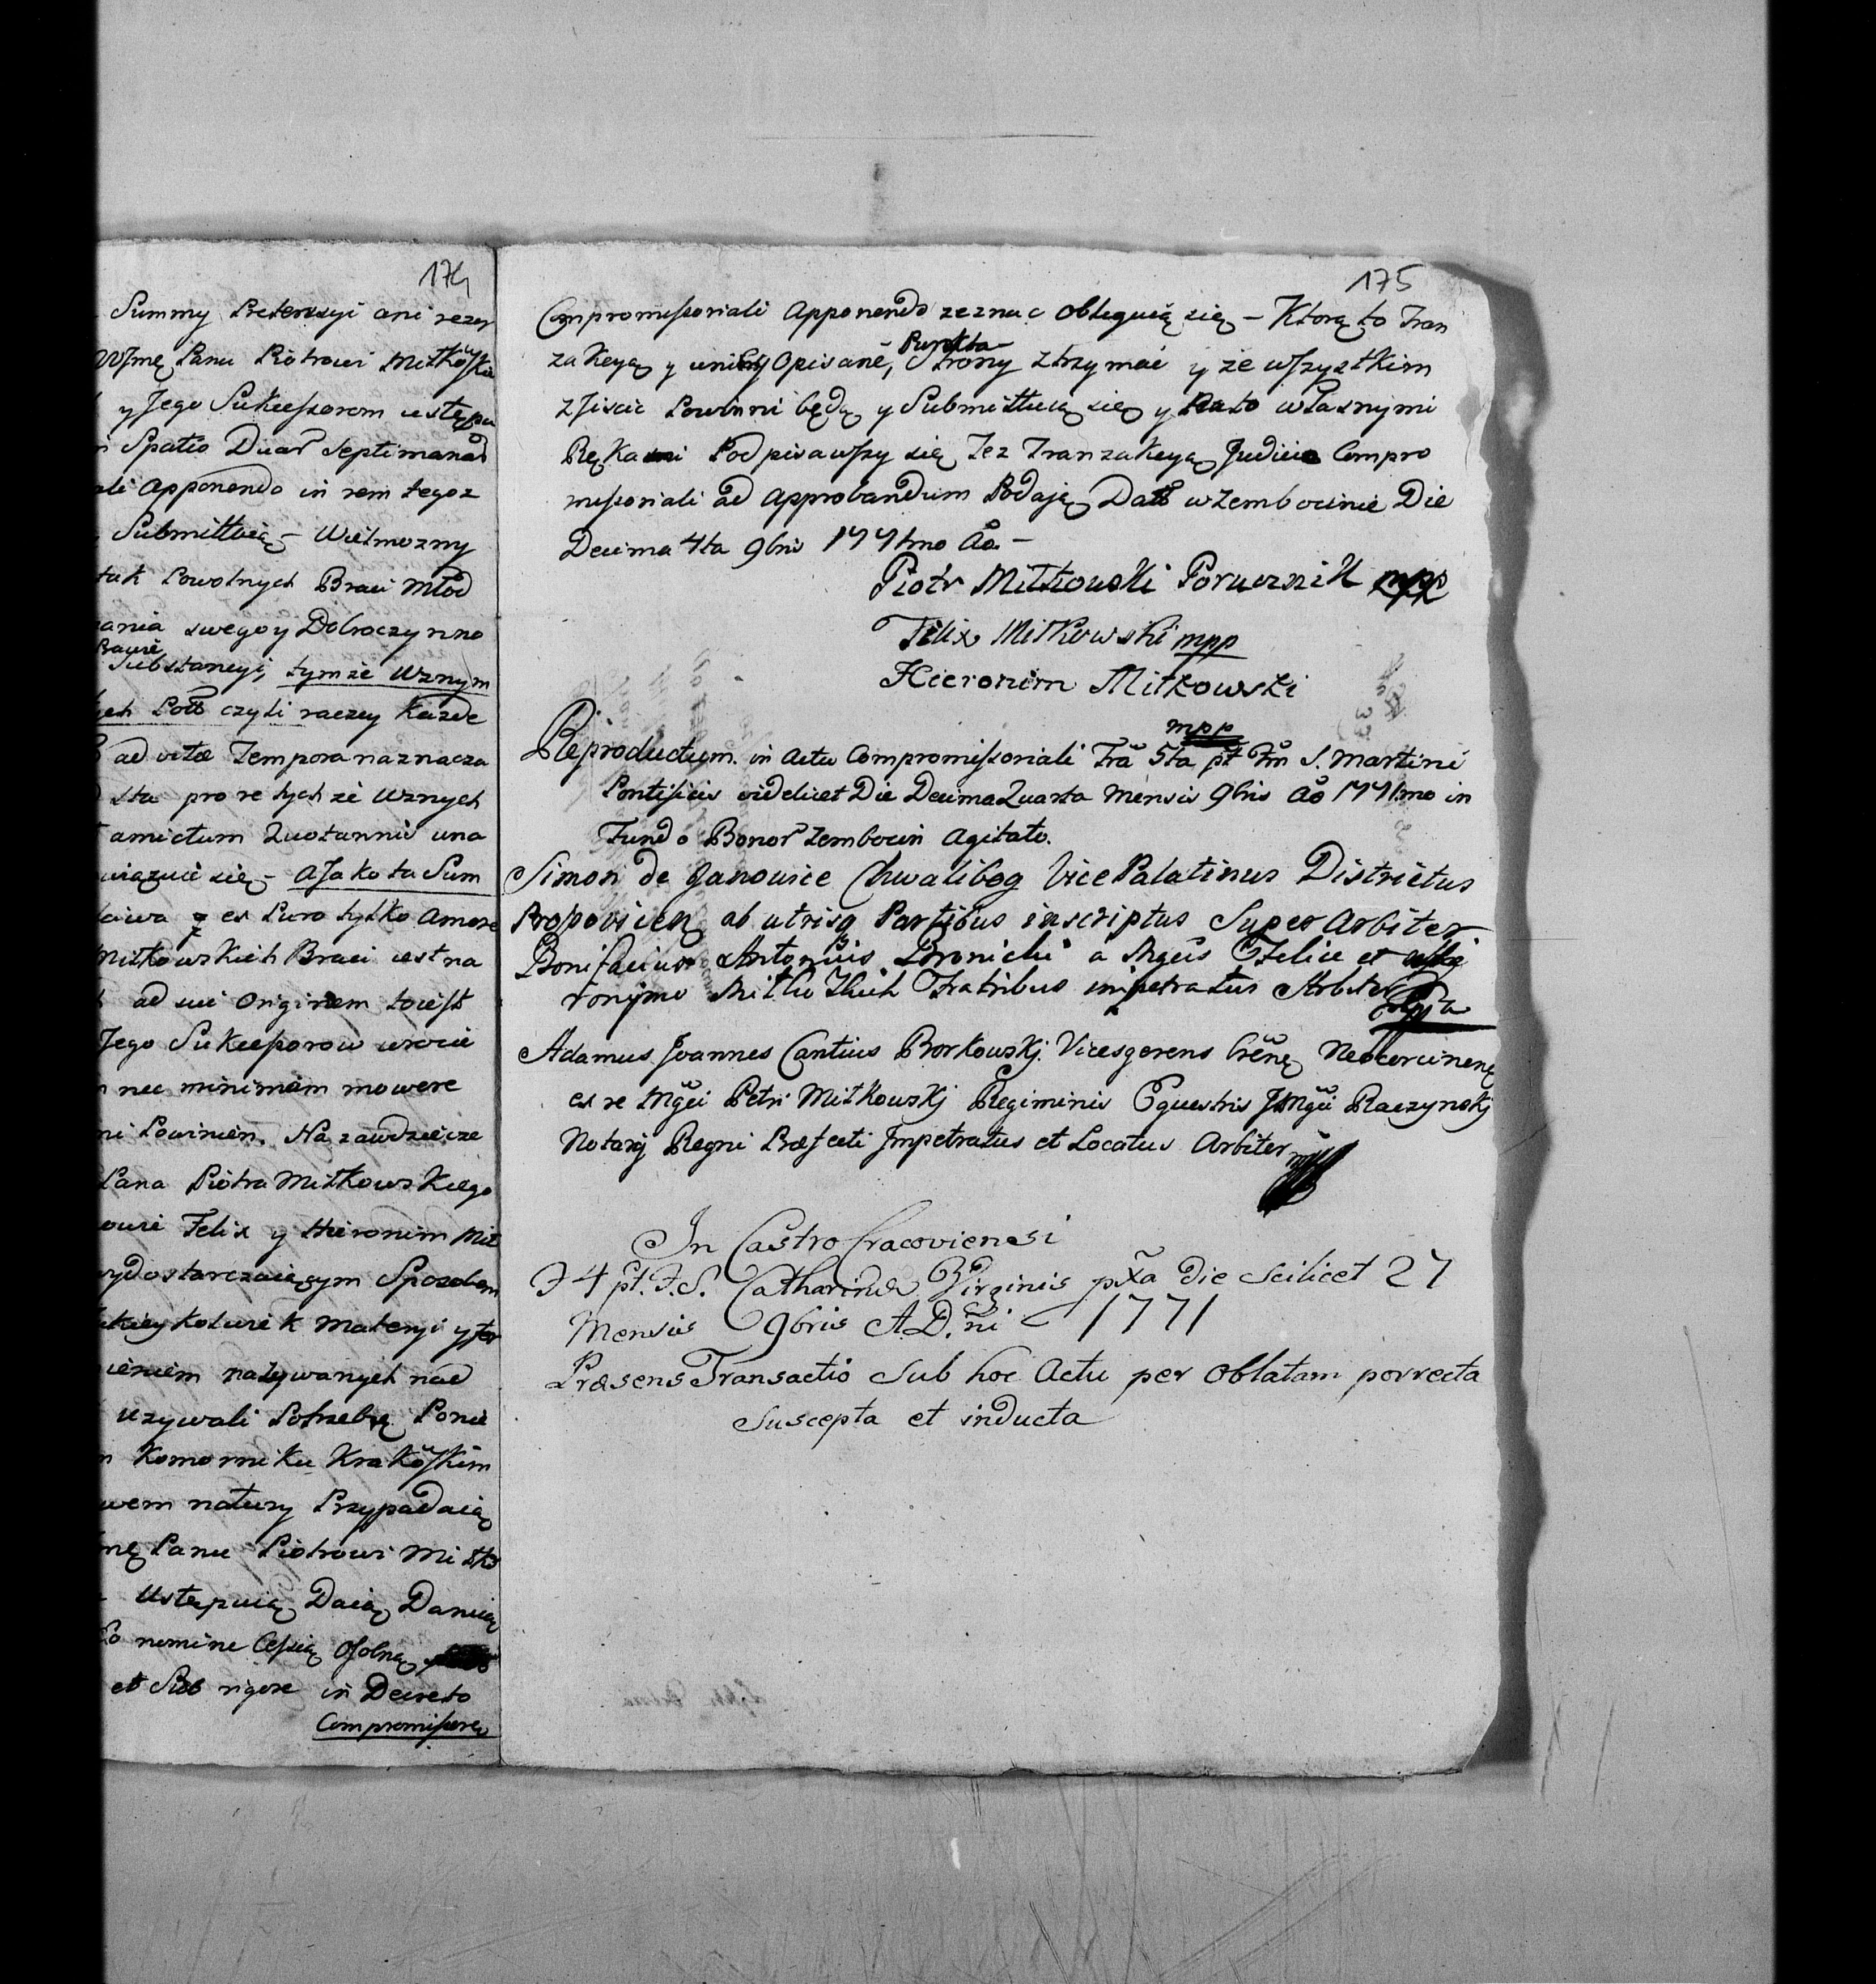 174
Summy Pretensyi ani rezer
Wsmę Panu Piotrowi Mitkowskie
y Jego Sukcessorom ustępu
Spatio Duar Septimanar
Apponendo in rem tegoz
Submittuią – Wielmozny
tak Powolnych Braci Młod
swego y Dobroczynno
Substancyi, tymze Wznym
czyli raczey Kazde
ad vitae Tempora naznacza
sta pro re tychze Wznych
amictum Quotannis una
się – A Jako ta Sum
ex Puro tylko Amore
Mitkowskich Braci iest na
ad sui Originem toiest
Jego Sukcessorow wrocic
nec minimam movere
Powinien. Na zawdzięcze
Pana Piotra Mitkowskiego
Felix y Hieronim Mit
wydostarczaiącym Sposobem
kolwiek Materyi y
nazywanych nad
uzywali Potrzebę. Ponie
Komorniku Krakoskim
natury Przypadaią
Panu Piotrowi Mitko
Ustępuią Daią Daruią
nomine Cessią Osobną
et Sub rigore in Decreto
Compromissore
175
Compromissoriali Apponendo zeznac obliguią się – Ktorą to Tran
zakcyą y w niey Opisane, Punkta Strony ztrzymać y ze wszystkim
zjiscic Powinni będą y Submittuią się y Na to własnymi
Rękami Podpisawszy się Tez Tranzakcyą Judicio Compro
missoriali ad approbandum Podają Datt w Zembocinie Die
Decima 4ta 9bris 1771mo Ao. –
Piotr Mitkowski Porucznik mpp
Felix Mitkowski mpp
Hieronim Mitkowski
mpp
Reproductum. in Actu Compromissoriali Fra 5ta pt Fm S. Martini
Pontificis videlicet Die Decima Quarta Mensis 9bris Ao 1771mo in
Fundo Bonor Zembocin Agitato.
Simon de Janowice Chwalibog Vice Palatinus Districtus
Proszovicen ab utrisq Partibus inscriptus Super Arbiter
Bonifacius Antonius Bronicki a Mgcis Felice et Hie
ronymo Mitkowskich Fratribus impetratus Arbiter
Adamus Joannes Cantius Borkowskj. Vicesgerens Neocorcinen
ex re Mgci Petri Mitkowskj Regiminis Equestris JMgci Raczynskj
Notarij Regni Praefecti Impetratus et Locatus Arbiter mpp
In Castro Cracoviensi
F 4 pt. F. S. Catharinae Virginis pxa die scilicet 27
Mensis 9bris A.D.ni 1771
Praesens Transactio Sub hoc Actu per Oblatam porrecta
Suscepta et inducta